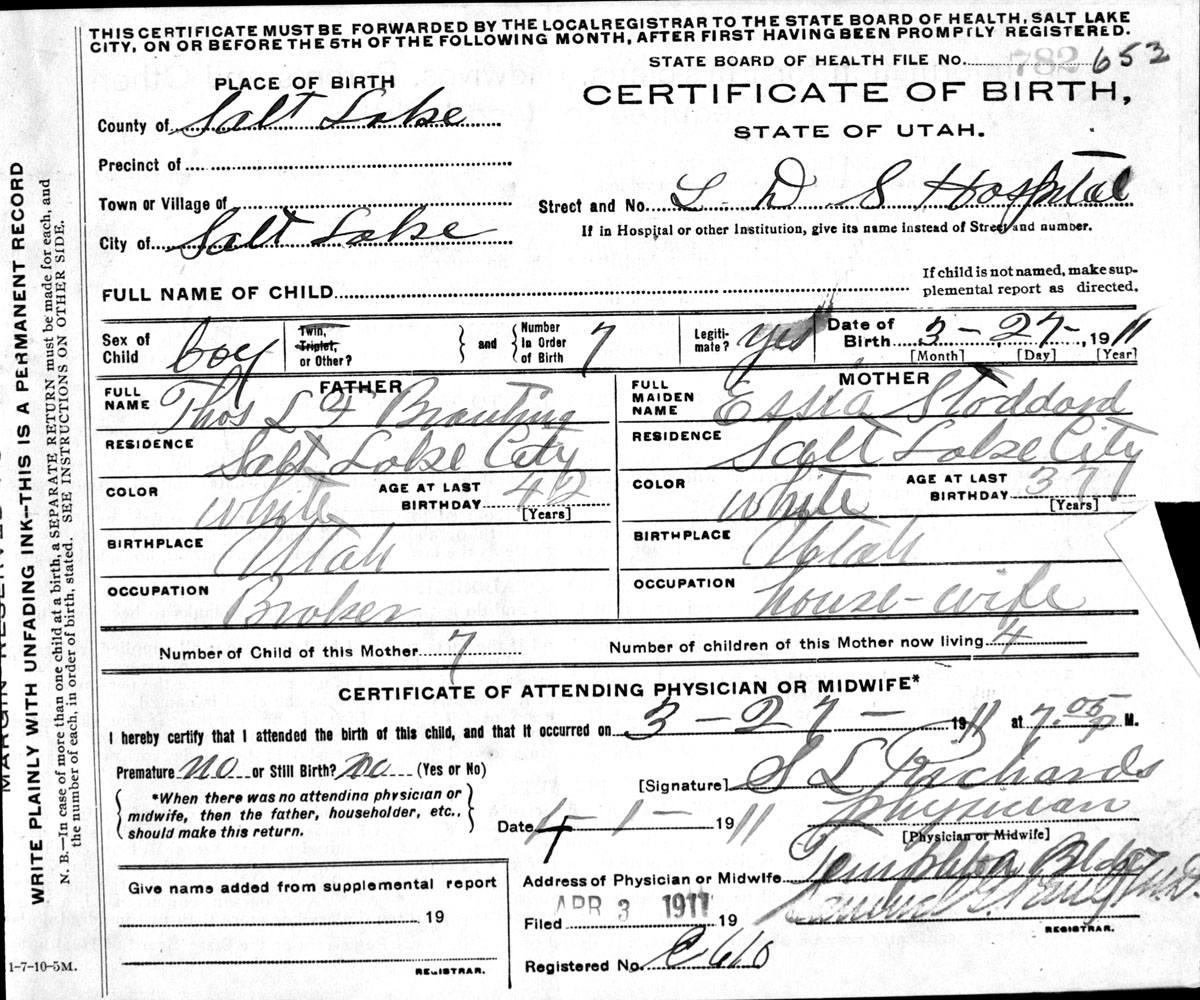 THIS CERTIFICATE MUST BE FORWARDED BY THE LOCAL REGISTRAR TO THE STATE BOARD OF HEALTH, SALT LAKE
CITY, ON OR BEFORE THE 5TH OF THE FOLLOWING MONTH, AFTER FIRST HAVING BEEN PROMPTLY REGISTERED.
STATE BOARD OF HEALTH FILE No. 782 653
PLACE OF BIRTH
CERTIFICATE OF BIRTH,
STATE OF UTAH.
County of Salt Lake
Precinct of
Town or Village of
Street and No. L D S Hospital
City of Salt Lake
If in Hospital or other Institution, give its name instead of Street and number.
FULL NAME OF CHILD
If child is not named, make sup-
plemental report as directed.
Sex of Child boy
Twin, Triplet, or Other?
and
Number In Order of Birth 7
Legiti-mate? yes
Date of Birth 3 - 27 -, 1911
[Month] [Day] [Year]
FATHER
FULL NAME Thos L F
MOTHER
FULL MAIDEN NAME Essia Stoddard
RESIDENCE Salt Lake City
RESIDENCE Salt Lake City
COLOR white AGE AT LAST BIRTHDAY 42 [Years]
COLOR white AGE AT LAST BIRTHDAY 37 [Years]
BIRTHPLACE Utah
BIRTHPLACE Utah
OCCUPATION Broker
OCCUPATION house-wife
Number of Child of this Mother 7 Number of children of this Mother now living 4
CERTIFICATE OF ATTENDING PHYSICIAN OR MIDWIFE*
I hereby certify that I attended the birth of this child, and that it occurred on 3 - 27 - 1911 at 7.05 P M.
Premature no or Still Birth? no (Yes or No)
[Signature] S L Richards
*When there was no attending physician or
midwife, then the father, householder, etc.,
should make this return.
Date 4 - 1 - 1911
physician
[Physician or Midwife]
Address of Physician or Midwife Templeton Bldg
Give name added from supplemental report
19
REGISTRAR.
Filed APR 3 1911 19
REGISTRAR.
Registered No. C 610
1-7-10-5M.
MARGIN RESERVED
WRITE PLAINLY WITH UNFADING INK—THIS IS A PERMANENT RECORD
N. B.—In case of more than one child at a birth, a SEPARATE RETURN must be made for each, and
the number of each, in order of birth, stated. SEE INSTRUCTIONS ON OTHER SIDE.